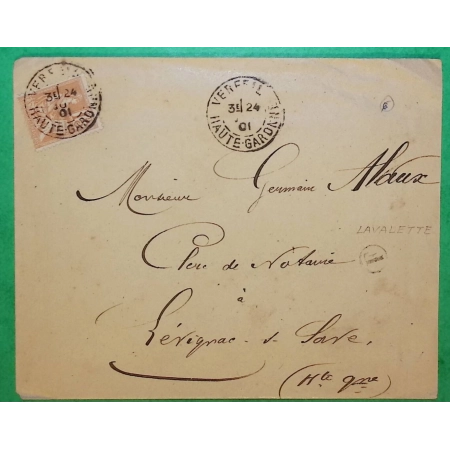 VERFEIL
3E 24
01
HAUTE-GARONNE
VERFEIL
3E 24
01
HAUTE-GARONNE
Monsieur Germain Alaux
LAVALETTE
Clerc de Notaire
à
Lévignac-s-Save,
(Hte Gne)